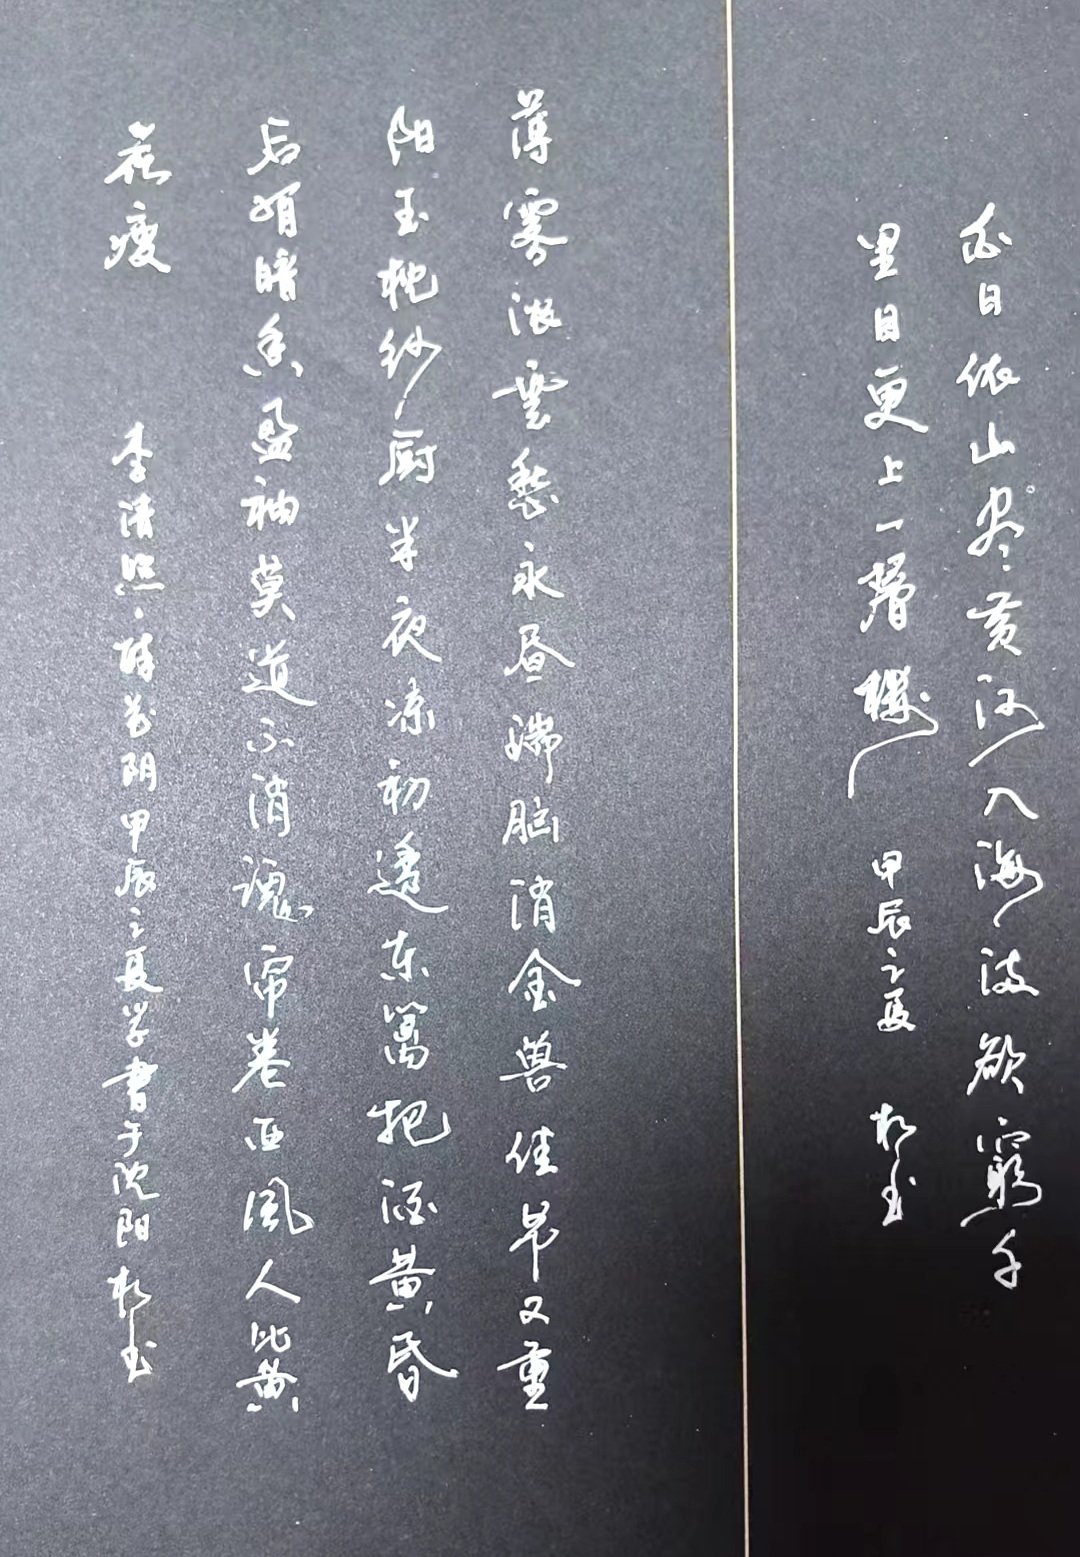 白日依山尽黄河入海流欲穷千
里目更上一层楼 甲辰之夏
薄雾浓云愁永昼瑞脑消金兽佳节又重
阳玉枕纱厨半夜凉初透东篱把酒黄昏
后有暗香盈袖莫道不消魂帘卷西风人比黄
花瘦 李清照醉花阴甲辰之夏学书于沈阳